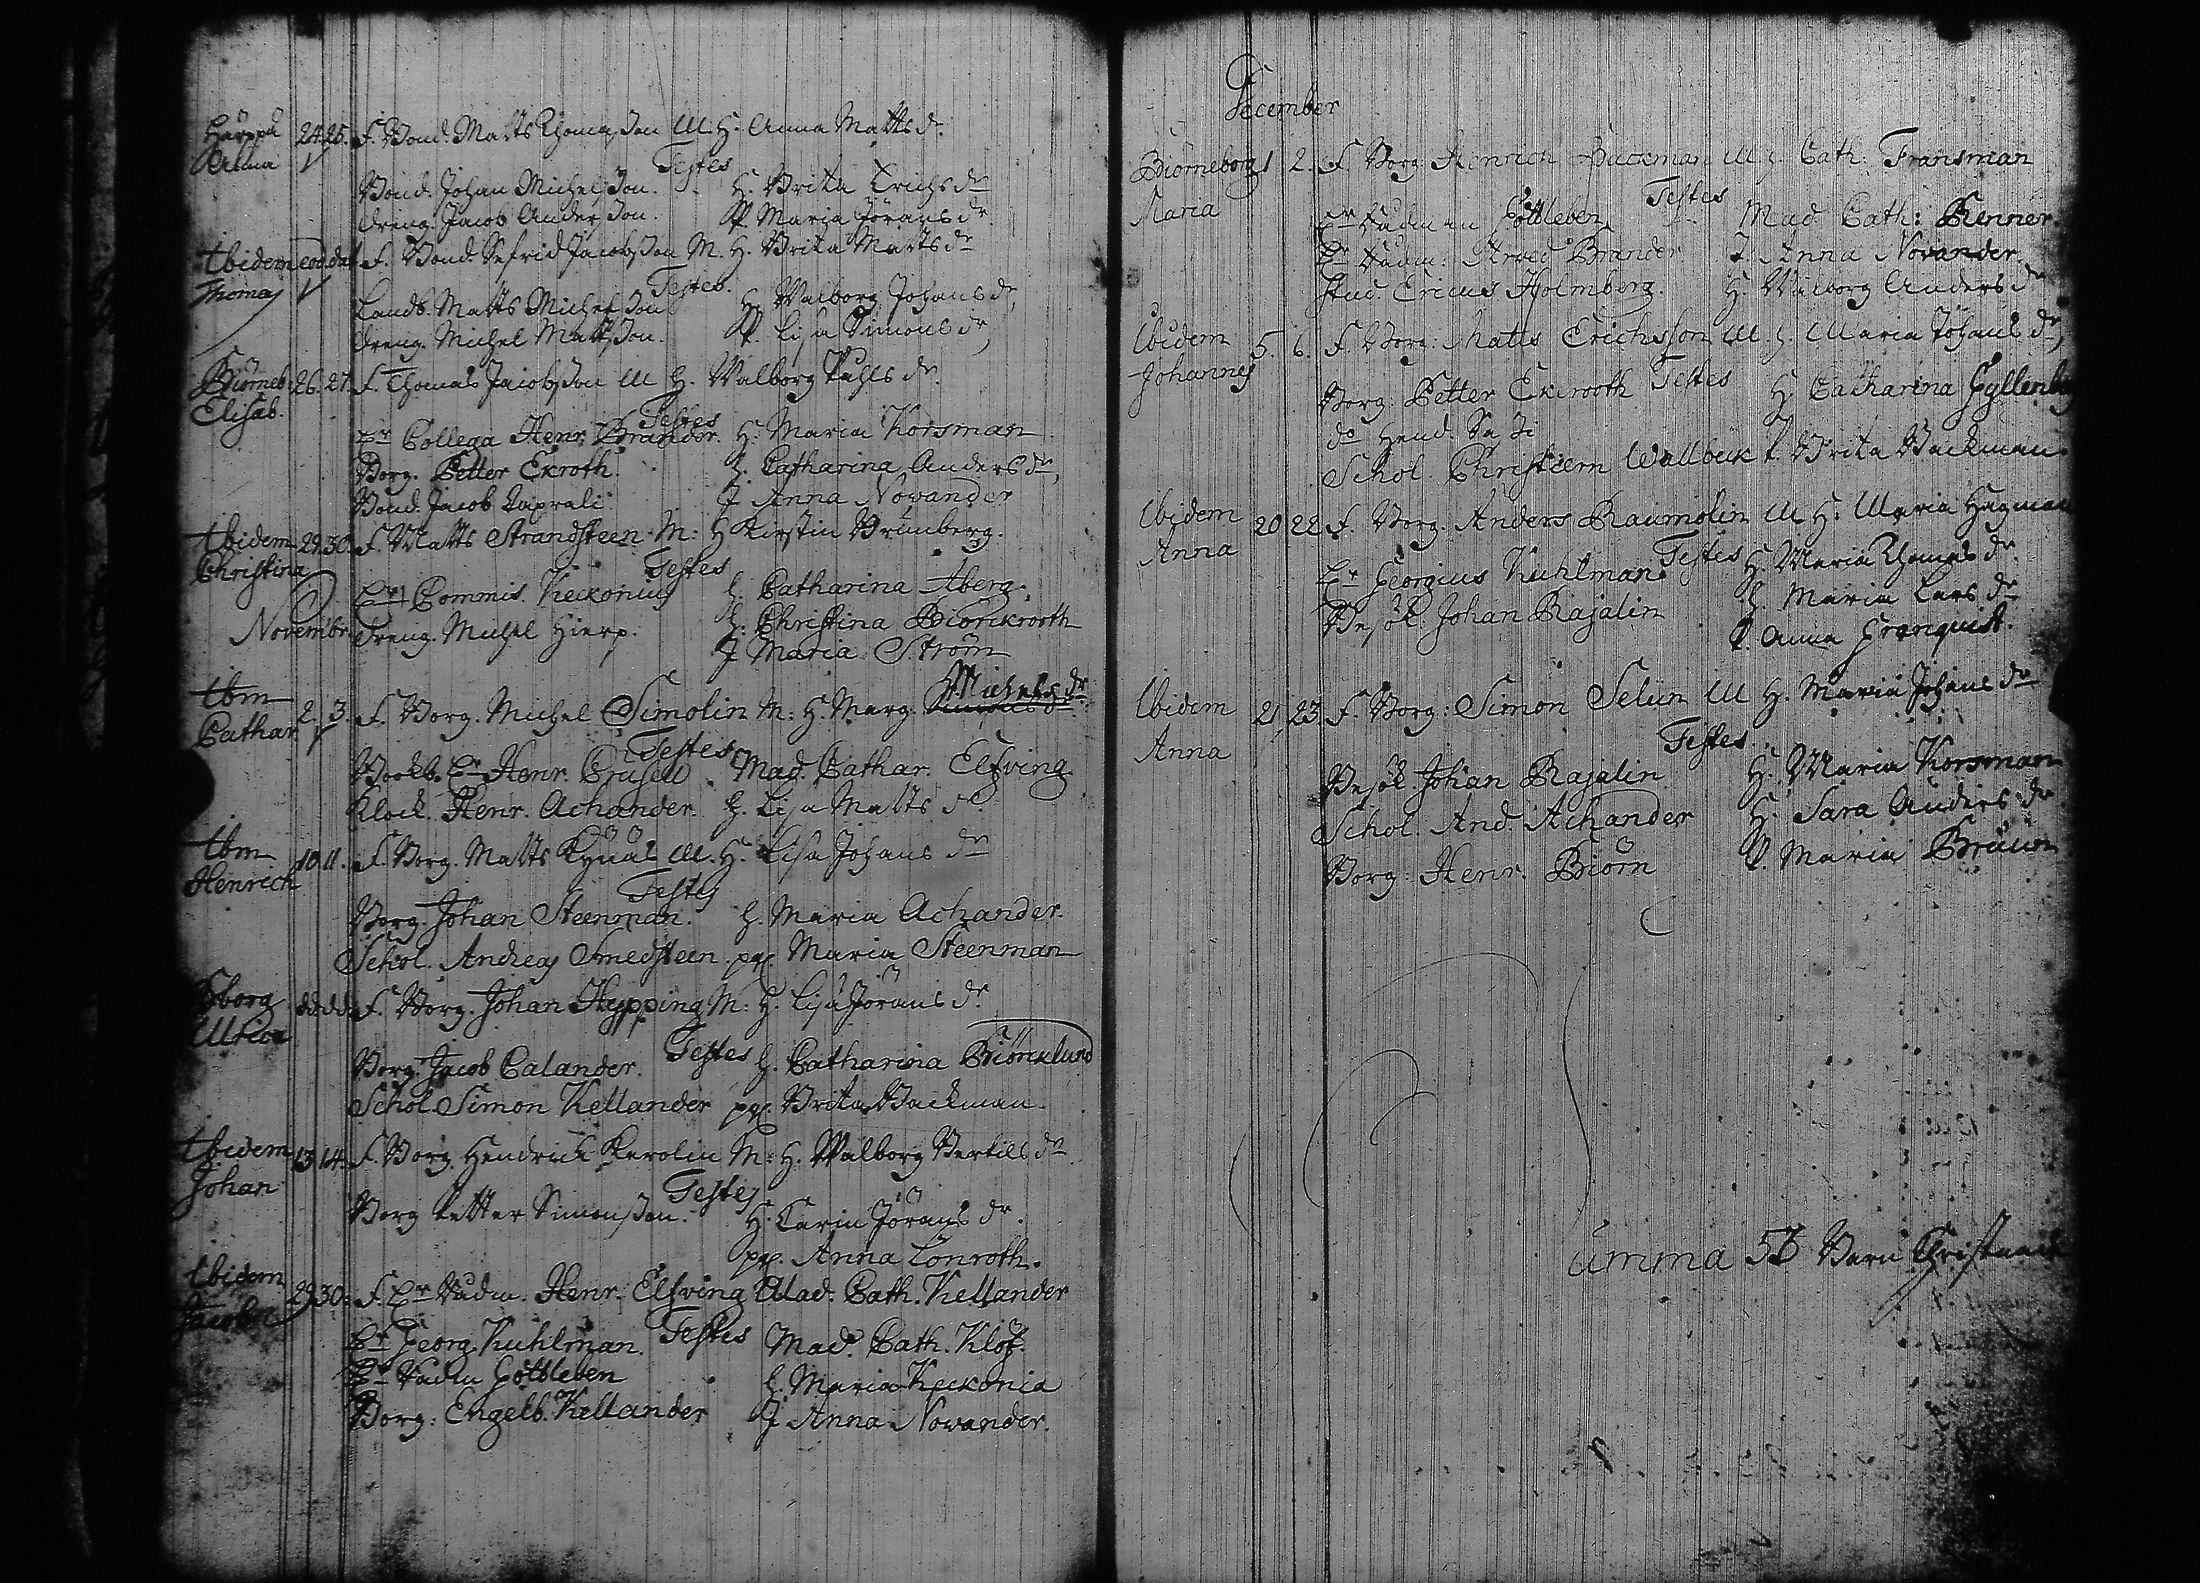 Härpä 24. 25. F. Bond. Matts Thomasson M. H. Anna Matts dr.
Anna Testes
Bond. Johan Michelsson. H. Brita Erichs dr
Dreng. Jacob Andersson. P. Maria Jörans dr
Ibidem eod. dat. F. Bond. Sefrid Jacobsson M. H. Brita Matts dr
Thomas Testes.
Landb. Matts Michelsson H. Walborg Johans dr,
Dreng. Michel Mattsson. P. Lisa Simons dr,
Biörneb. 26. 27. F. Thomas Jacobsson M H. Walborg Påhls dr.
Elisab. Testes
Hr Collega Henr. Brander. H. Maria Korsman
Borg. Petter Ekroth. H. Catharina Anders dr,
Bond. Jacob Laprali J Anna Novander
Ibidem 29. 30. F. Matts Strandsteen M: H Kirstin Brunberg.
Christina Testes
Hr Commis. Keckonius H. Catharina Åberg.
Novembr. Dreng. Michel Hierp. H. Christina Biörckrooth
J Maria Ström
Ibm 2. 3. F. Borg. Michel Simolin M: H. Marg. Michels dr
Cathar. Testes
Bookb. Hr Henr. Crusell Mad. Cathar. Elfving
Klock. Henr. Achander. H. Lisa Matts dr
Ibm 10. 11. F. Borg. Matts M. H. Lisa Johans dr
Henrich Testes
Borg. Johan Steenman. H. Maria Achander.
Schol. Andreas Smedsteen. pig. Maria Steenman
dd. dd. F. Borg. Johan Hypping M: H. Lisa Jörans dr.
Ulrica
Borg. Jacob Calander. Testes H. Catharina Biörcklund
Schol. Simon Kellander pig. Brita Backman.
Ibidem 13. 14. F. Borg. Hendrick Kerolin M: H. Walborg Bertils dr
Johan Testes
Borg Petter Simonsson. H. Carin Jörans dr.
pig. Anna Lönroth.
Ibidem 29. 30. F. Hr Rådm. Henr. Elfving Mad. Cath. Kellander
Jacob
Hr Georg Kuhlman. Testes Mad. Cath. Klöf.
Hr Rådm Gottleben H. Maria Keckonia
Borg: Engelb. Kellander J Anna Novander.
December
Biörneborg 1 2. F. Borg. Henrich Backman M H. Cath: Fransman
Maria Testes
Hr Rådman Gottleben Mad Cath: Renner
Hr Rådm: Arved Brander J. Anna Novander.
Stud. Ericus Holmberg. H. Walborg Anders dr
Ibidem 5. 6. F. Borg: Matts Erichsson M. H. Maria Johans dr,
Johannes
Borg. Petter Ekrooth Testes H Catharina Gyllenbög
do Hend.
Schol. Christiern Wallbeck P. Brita Backman.
Ibidem 20 22 F. Borg. Anders Raumolin M H. Maria Hagman
Anna
Hr Georgius Kuhlman. Testes H. Maria Thomas dr.
Besök. Johan Rajalin H. Maria Lars dr
P. Anna Granquist.
Ibidem 21, 23. F. Borg: Simon Selin M H. Maria Johans dr
Anna Testes
Besök Johan Rajalin H. Maria Korsman
Schol. And. Achander H. Sara Anders dr
Borg. Henr. Biörn P Maria Bruun
umma Barn Christnade